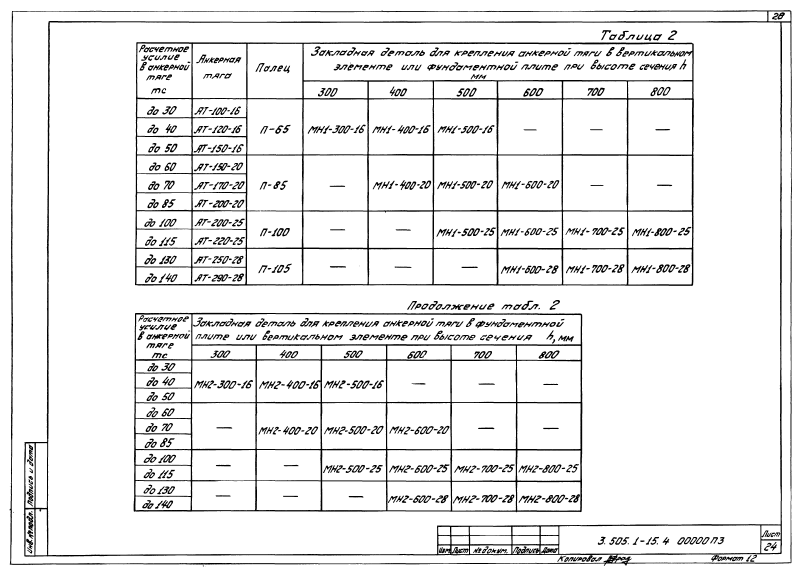 28
Таблица 2
Расчетное усилие в анкерной тяге тс
Анкерная тяга
Палец
Закладная деталь для крепления анкерной тяги в вертикальном
элементе или фундаментной плите при высоте сечения h
мм
300 400 500 600 700 800
до 30 АТ-100-16
до 40 АТ-120-16 П-65 МН1-300-16 МН1-400-16 МН1-500-16 — — —
до 50 АТ-150-16
до 60 АТ-150-20
до 70 АТ-170-20 П-85 — МН1-400-20 МН1-500-20 МН1-600-20 — —
до 85 АТ-200-20
до 100 АТ-200-25
П-100 — — МН1-500-25 МН1-600-25 МН1-700-25 МН1-800-25
до 115 АТ-220-25
до 130 АТ-250-28
П-105 — — — МН1-600-28 МН1-700-28 МН1-800-28
до 140 АТ-290-28
Продолжение табл. 2
Расчетное усилие в анкерной тяге тс
Закладная деталь для крепления анкерной тяги в фундаментной
плите или вертикальном элементе при высоте сечения h, мм
300 400 500 600 700 800
до 30
до 40 МН2-300-16 МН2-400-16 МН2-500-16 — — —
до 50
до 60
до 70 — МН2-400-20 МН2-500-20 МН2-600-20 — —
до 85
до 100
— — МН2-500-25 МН2-600-25 МН2-700-25 МН2-800-25
до 115
до 130
— — — МН2-600-28 МН2-700-28 МН2-800-28
до 140
Инв. № подл. Подпись и дата
Изм. Лист № докум. Подпись Дата
3.505.1-15.4 00000ПЗ
Лист
24
Копировал
Формат 12